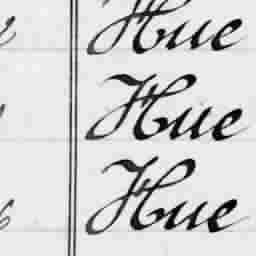 Hue
Hue
Hue